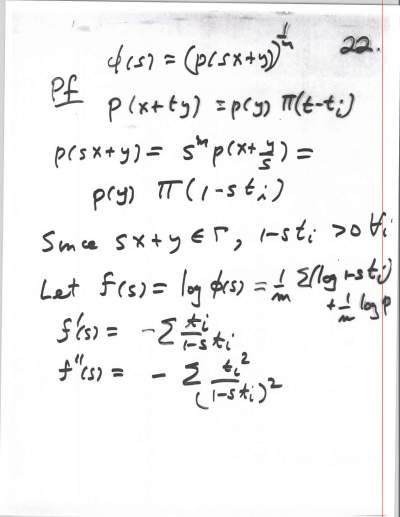 22.
φ(s) = (p(sx+y))^{1/m}
Pf
p(x+ty) = p(y) Π(t-t_i)
p(sx+y) = s^m p(x+y/s) =
p(y) Π(1-st_i)
Since sx+y ∈ Γ, 1-st_i >0 ∀i
Let f(s) = log φ(s) = 1/m Σ(log 1-st_i)
+ 1/m log p
f'(s) = - Σ t_i/(1-st_i)
f''(s) = - Σ t_i²/(1-st_i)²